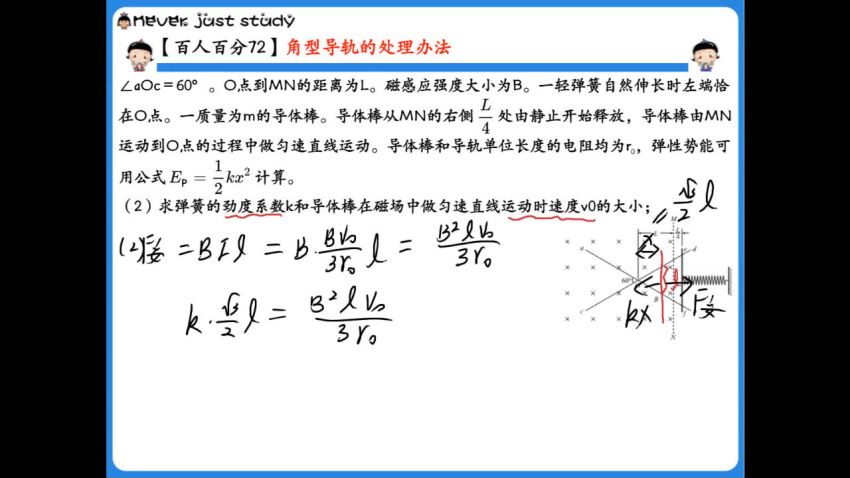 Never just study
【百人百分72】角型导轨的处理办法
∠aOc=60° 。O点到MN的距离为L。磁感应强度大小为B。一轻弹簧自然伸长时左端恰
在O点。一质量为m的导体棒。导体棒从MN的右侧 L/4 处由静止开始释放，导体棒由MN
运动到O点的过程中做匀速直线运动。导体棒和导轨单位长度的电阻均为r₀，弹性势能可
用公式 Eₚ = 1/2 kx² 计算。
（2）求弹簧的劲度系数k和导体棒在磁场中做匀速直线运动时速度v0的大小；
√3/2 l
(2) F安 = BIl = B · Bv₀/3r₀ l = B²lv₀/3r₀
k · √3/2 l = B²lv₀/3r₀
M
L
x
a
d
60°
l
c
B
f
kx
F安
N